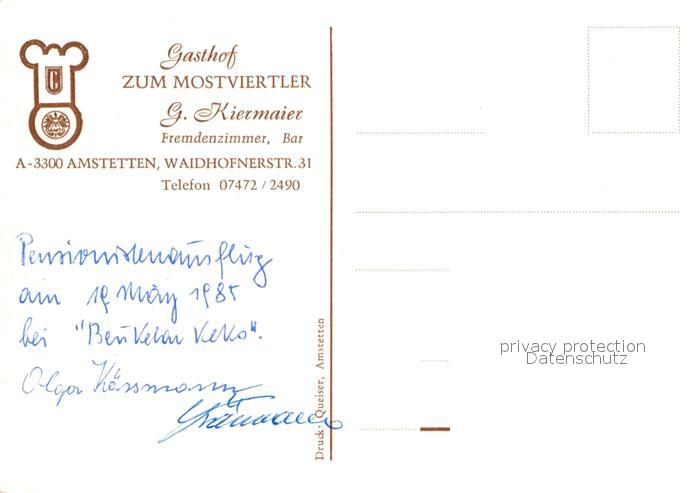 Gasthof
ZUM MOSTVIERTLER
G. Kiermaier
Fremdenzimmer, Bar
A-3300 AMSTETTEN, WAIDHOFNERSTR. 31
Telefon 07472 / 2490
Pensionistenausflug
am 19 März 1985
bei "Beukelar Keks".
Olga
Druck: Queiser, Amstetten
privacy protection
Datenschutz